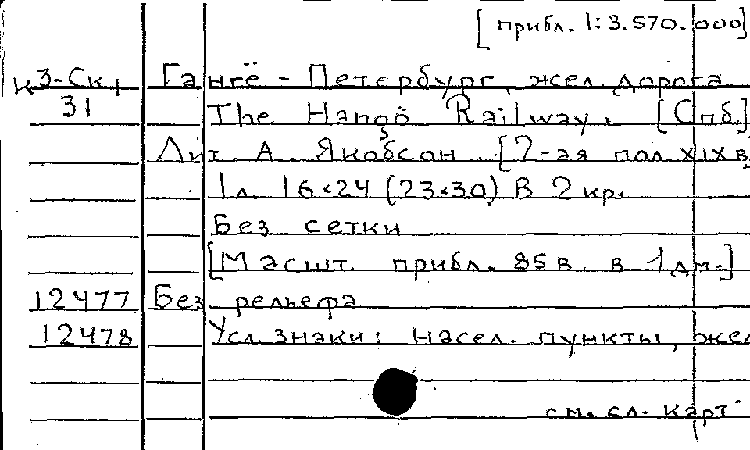 [прибл. 1:3.570.000]
К З-Ск 1 Гангё - Петербург, жел. дорога
31 The Hangö Railway. [Спб.]
Лит. А. Якобсон [2-ая пол. XIX в.
1 л. 16×24 (23×30) В 2 кр.
Без сетки
[Масшт. прибл. 85 в. в 1 дм.]
12477 Без рельефа
12478 Усл. знаки: Насел. пункты, жел
см. сл. карт